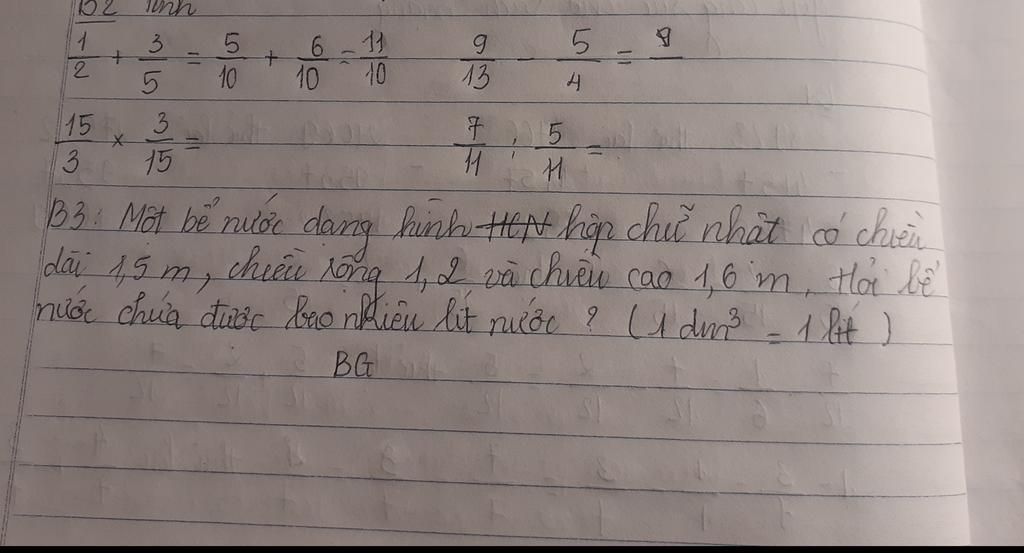 B2 Tính
1/2 + 3/5 = 5/10 + 6/10 = 11/10 9/13 - 5/4 = 9/
15/3 × 3/15 = 7/11 : 5/11 =
B3: Một bể nước dạng hình HCN hộp chữ nhật có chiều
dài 1,5 m, chiều rộng 1,2 và chiều cao 1,6 m. Hỏi bể
nước chứa được bao nhiêu lít nước? (1 dm³ = 1 lít)
BG